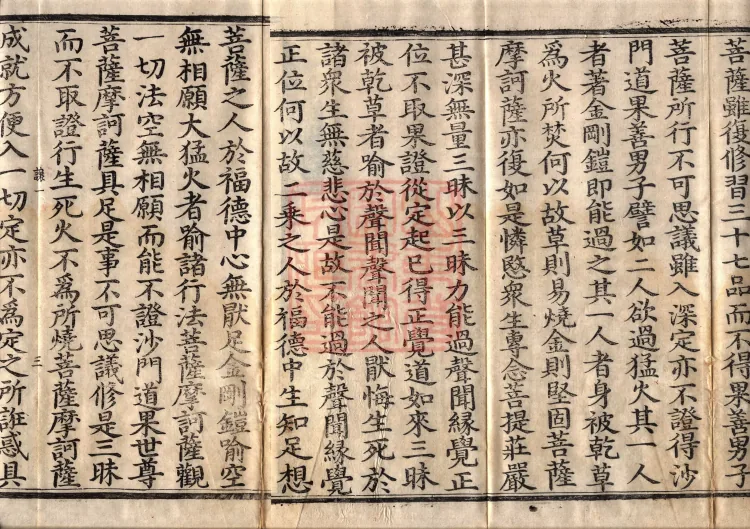 菩薩雖復修習三十七品而不得果善男子
菩薩所行不可思議雖入深定亦不證得沙
門道果善男子譬如二人欲過猛火其一人
者著金剛鎧即能過之其一人者身被乾草
為火所焚何以故草則易燒金則堅固菩薩
摩訶薩亦復如是憐愍眾生專念菩提莊嚴
甚深無量三昧以三昧力能過聲聞緣覺正
位不取果證從定起已得正覺道如來三昧
被乾草者喻於聲聞聲聞之人厭悔生死於
諸眾生無慈悲心是故不能過於聲聞緣覺
正位何以故二乘之人於福德中生知足想
菩薩之人於福德中心無厭足金剛鎧喻空
無相願大猛火者喻諸行法菩薩摩訶薩觀
一切法空無相願而能不證沙門道果世尊
菩薩摩訶薩具足是事不可思議修是三昧
而不取證行生死火不為所燒菩薩摩訶薩
三
成就方便入一切定亦不為定之所誑惑具